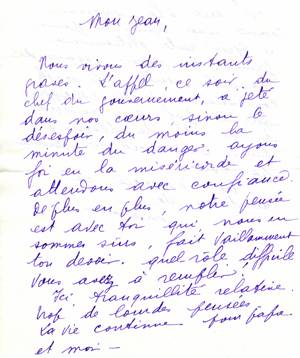 Mon Jean,
Nous vivons des instants
graves. L'appel, ce soir du
chef du gouvernement, a jeté
dans nos cœurs, sinon le
désespoir, du moins la
minute du danger. ayons
foi en la miséricorde et
attendons avec confiance.
De plus en plus, notre pensée
est avec toi qui, nous en
sommes sûrs, fait vaillamment
ton devoir. quel rôle difficile
vous avez à remplir !
Ici, tranquillité relative.
trop de lourdes pensées
La vie continue pour papa
et moi —